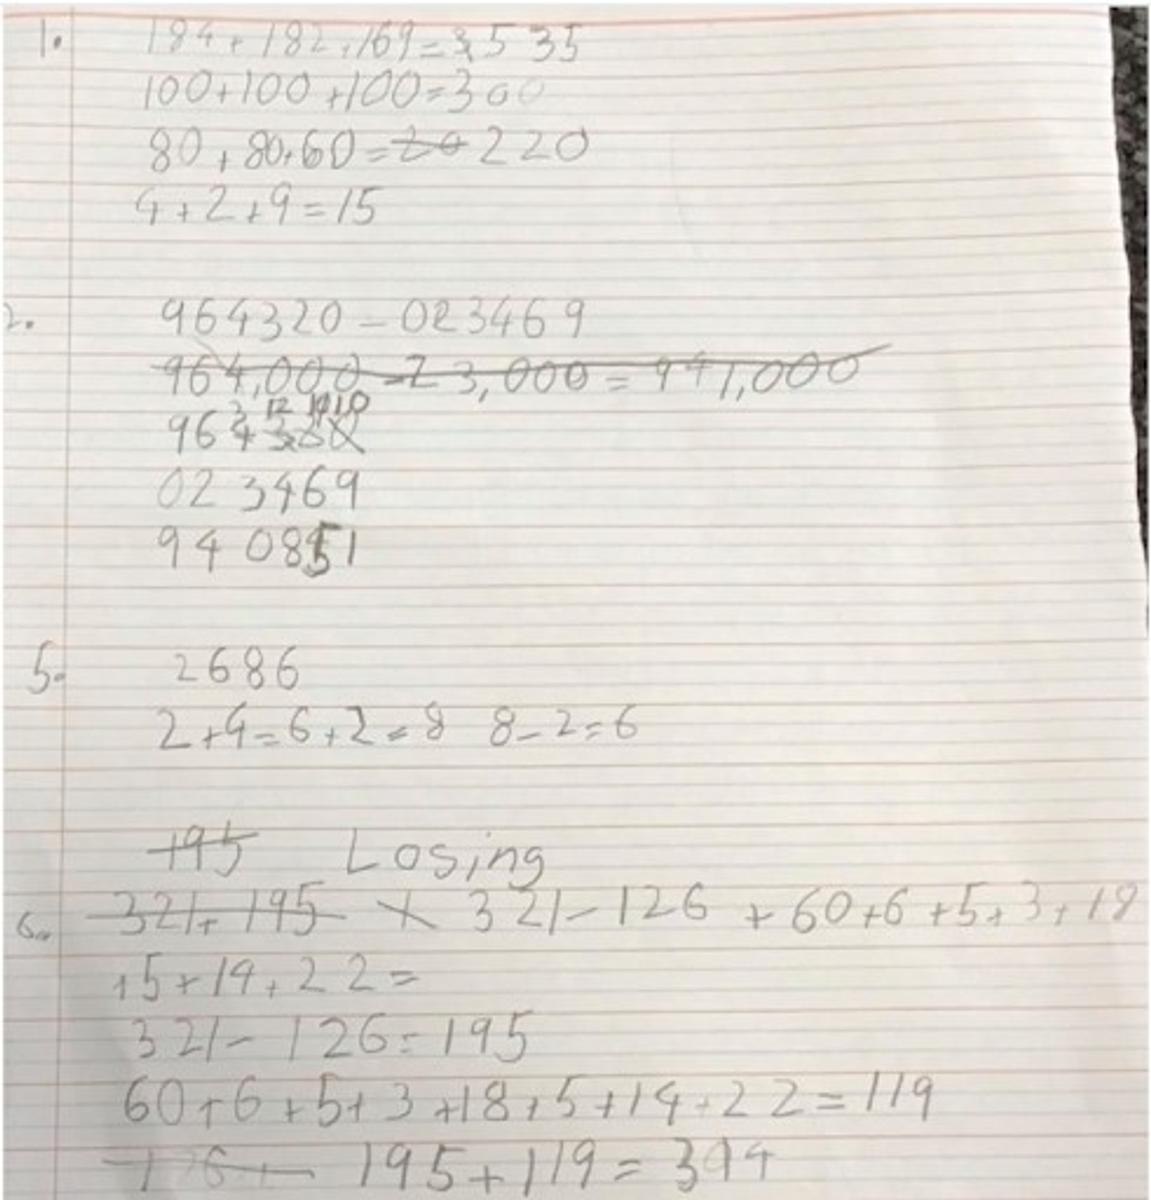 1. 184+182+169=535
100+100+100=300
80+80+60=220
4+2+9=15
2. 964320-023469
964,000-23,000=941,000
3 12 11 10
964320
023469
940851
5. 2686
2+4=6+2=8 8-2=6
195 Losing
6. 321+195 321-126+60+6+5+3+18
+5+14+22=
321-126=195
60+6+5+3+18+5+14+22=119
195+119=394